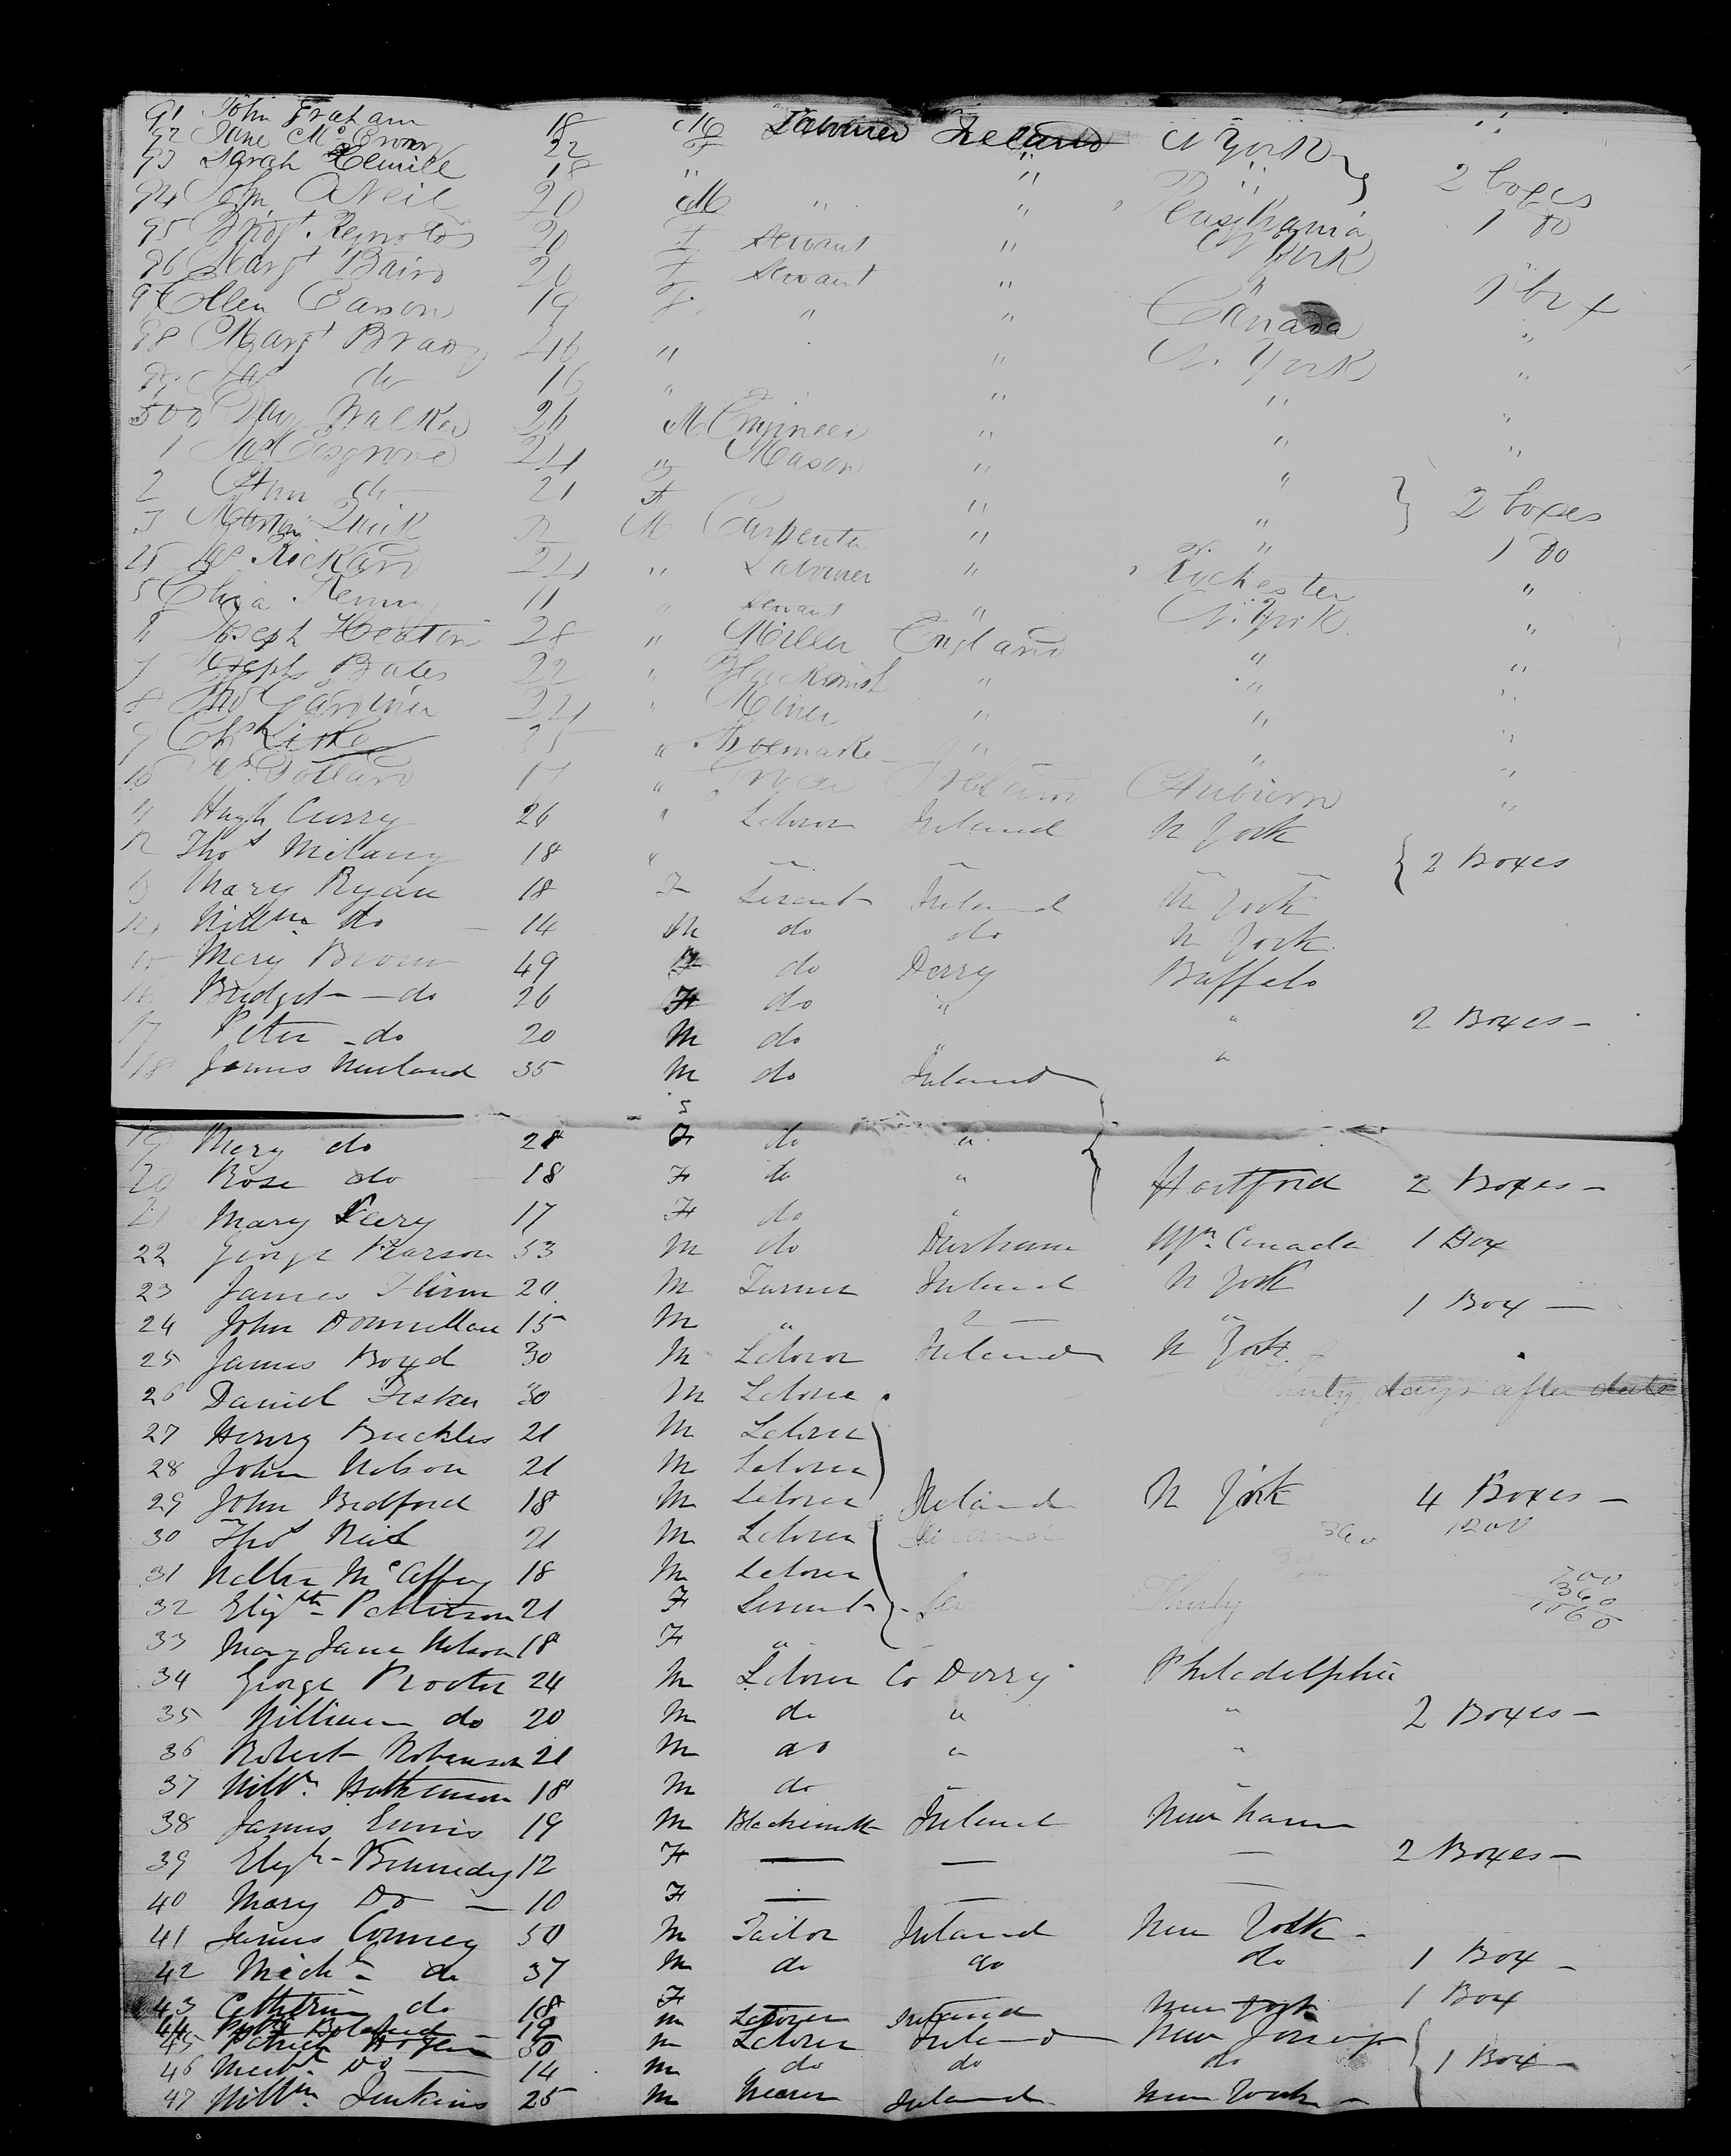 91 John Graham 18 M Labourer Ireland N York "
92 Jane Mc 22 F " "
93 Sarah 18 " " " 2 boxes
94 John ONeil 20 M " " Pensilvania 1 do
95 Bridgt Reynolds 20 F Servant " N York
96 Margt Baird 20 F Servant " " 1 box
97 Ellen Carson 19 F " " Canada "
98 Margt Brady 46 " " N. York "
do 16 " " "
500 Walker 26 M Engineer " " "
1 Cosgrove 24 " Mason " "
2 Ann do 21 F " " 2 boxes
3 Quirk M Carpenter " " 1 do
4 Rickard 24 " Labourer " Rochester "
5 Eliza Kenny 11 " Servant " N. York "
6 Joseph Heaton 28 " Miller England " "
7 Joseph Bates 22 " Blacksmith " " "
8 Gardiner 24 " Miner " " "
9 35 " Shoemaker " " "
10 Pollard 17 " Ireland Auburn "
11 Hugh Curry 26 " Laborer Ireland N York
12 Thos 18 " — — — 2 Boxes
13 Mary Ryan 18 F Servant Ireland N York
14 Willm do — 14 M do do N York
15 Mery Brown 49 F do Derry Buffalo
16 Bridget — do 26 F do " " 2 Boxes —
17 Peter — do 20 M do " "
18 James Newland 35 M do Ireland
19 Mery do 28 F do "
20 Rose do — 18 F do " Hartford 2 Boxes —
21 Mary Leery 17 F do "
22 George Pearson 53 M do Durham Upr Canada 1 Box
23 James Flinn 20 M Farmer Ireland N York
24 John Donnellan 15 M " — " 1 Box —
25 James Boyd 30 M Laborer Ireland N York
26 Daniel Fisker 30 M Laborer Thirty days after date
27 Henry Buckles 21 M Laborer
28 John Nelson 21 M Laborer
29 John Bedford 18 M Laborer Ireland N York 4 Boxes —
30 Thos Neil 21 M Laborer Ireland 360 1200
31 Walter McCaffery 18 M Laborer 700
32 Elizth Patterson 21 F Servant Thirty 360
1060
33 Mary Jane Nelson 18 F "
34 George Procter 24 M Laborer Co Derry Philadelphia
35 William do 20 M do " " 2 Boxes —
36 Robert Robinson 21 M do " "
37 Willm 18 M do "
38 James Ennis 19 M Blacksmith Ireland New haven
39 Elizh Kennedy 12 F — — — 2 Boxes —
40 Mary Do — 10 F — — —
41 James Conney 50 M Tailor Ireland New York —
42 Michl do 37 M do do do 1 Box —
43 Catherine do 18 F 1 Box
44 19 M Laborer Ireland New York
45 Patrick Hogan 30 M Laborer Ireland New Jersey
46 Michl Do — 14 M do do do 1 Box —
47 Willm Jenkins 25 M Ireland New York —